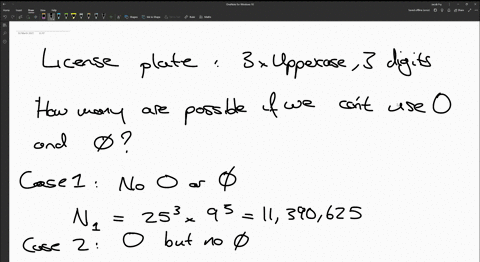 License plate : 3 x Uppercase, 3 digits
How many are possible if we can't use O
and Ø?
Case 1: No O or Ø
N₁ = 25³ x 9⁵ = 11,390,625
Case 2: O but no Ø